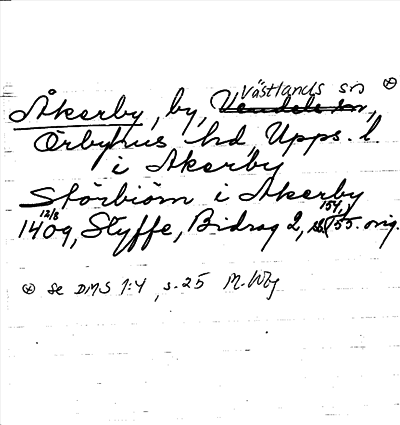 Västlands sn ⊛
Åkerby, by, Vendels sn,
Örbyhus hd, Upps. l.
i Akerby
Störbiörn i Akerby
12/8 154,
1409, Styffe, Bidrag 2, s. 155. orig.
⊛ se DMS 1:4, s. 25 M. Wbg